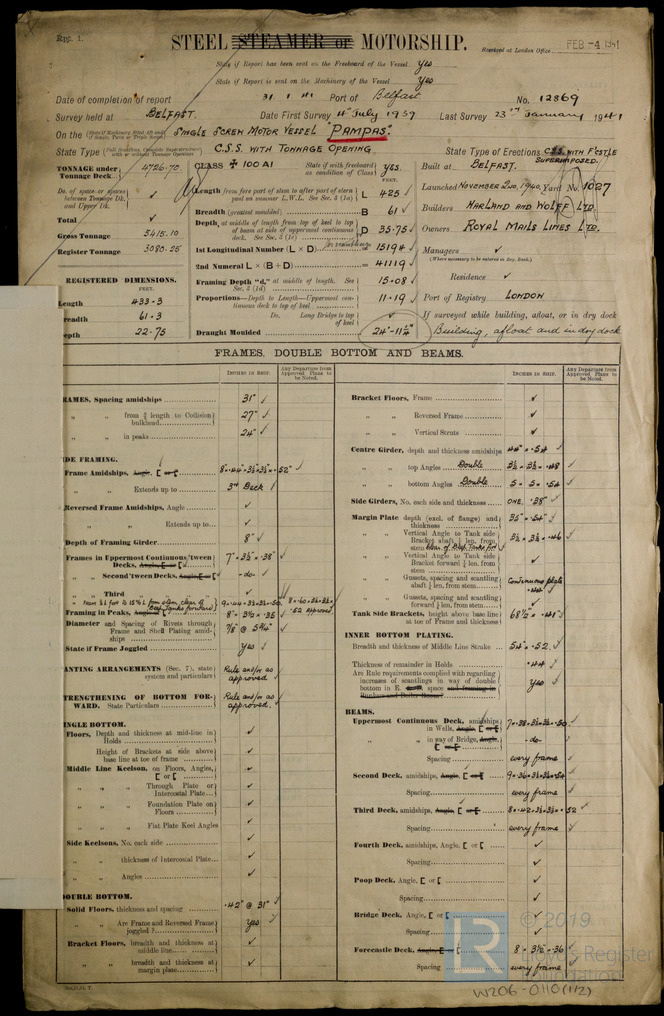 Rpt. 1.
STEEL STEAMER or MOTORSHIP.
Received at London Office FEB -4 1941
State if Report has been sent on the Freeboard of the Vessel Yes
State if Report is sent on the Machinery of the Vessel Yes
Date of completion of report 31 1 41 Port of Belfast No. 12869
Survey held at BELFAST. Date First Survey 4th July 1939 Last Survey 23rd January 1941
On the SINGLE SCREW MOTOR VESSEL "PAMPAS".
State Type C.S.S. WITH TONNAGE OPENING State Type of Erections C.S.S. WITH F'CSTLE SUPERIMPOSED.
TONNAGE under Tonnage Deck 4726.70
Do. of space or spaces between Tonnage Dk. and Upper Dk. ✓
Total ✓
Gross Tonnage 5415.10
Register Tonnage 3080.25
REGISTERED DIMENSIONS.
FEET.
Length 433.3
readth 61.3
epth 22.75
CLASS ✠ 100 A1 State if with freeboard as condition of Class YES.
FEET.
Length from fore part of stem to after part of stern post on summer L.W.L. See Sec. 3 (1a) L 425 ✓
Breadth (greatest moulded) B 61 ✓
Depth, at middle of length from top of keel to top of beam at side of uppermost continuous deck. See Sec. 3 (1c) D 35.75 ✓
1st Longitudinal Number (L × D) = 15194 ✓
2nd Numeral L × (B + D) = 41119 ✓
Framing Depth "d," at middle of length. See Sec. 3 (1d) 15.08 ✓
Proportions—Depth to Length—Uppermost continuous deck to top of keel 11.19 ✓
Do. Long Bridge to top of keel ✓
Draught Moulded 24'-11½"
Built at BELFAST.
Launched NOVEMBER 2ND, 1940. Yard No. 1027
Builders HARLAND AND WOLFF LTD.
Owners ROYAL MAILS LINES LTD.
Managers ✓
(Where necessary to be entered in Reg. Book.)
Residence ✓
Port of Registry LONDON
If surveyed while building, afloat, or in dry dock
Building, afloat and in dry dock
FRAMES, DOUBLE BOTTOM AND BEAMS.
INCHES IN SHIP. Any Departure from Approved Plans to be Noted.
RAMES, Spacing amidships 31" ✓
" " from ⅗ length to Collision bulkhead 27" ✓
" " in peaks 24" ✓
DE FRAMING.
Frame Amidships, Angle, [ or [ 8" .44" 3½" 3½" .52" ✓
" " Extends up to 3rd Deck
Reversed Frame Amidships, Angle ✓
" " Extends up to ✓
Depth of Framing Girder 8" ✓
Frames in Uppermost Continuous 'tween Decks, Angle, [ or [ 7" 3½" .38" ✓
" " Second 'tween Decks, Angle, [ or [ -do- ✓
" " Third
8 .60 .3½ 3½ .52 approved
Framing in Peaks, Angle, [ 8" 3½ .35 ✓
Diameter and Spacing of Rivets through Frame and Shell Plating amidships ⅞ @ 5¼" ✓
State if Frame Joggled Yes ✓
ANTING ARRANGEMENTS (Sec. 7), state system and particulars Rule and/or as approved ✓
TRENGTHENING OF BOTTOM FORWARD. State Particulars Rule and/or as approved. ✓
INGLE BOTTOM.
Floors, Depth and thickness at mid-line in Holds ✓
Height of Brackets at side above base line at toe of frame ✓
Middle Line Keelson, on Floors, Angles, [ or [ ✓
" " Through Plate or Intercostal Plate ✓
" " Foundation Plate on Floors ✓
" " Flat Plate Keel Angles ✓
Side Keelsons, No. each side ✓
" " thickness of Intercostal Plate ✓
" " Angles ✓
OUBLE BOTTOM.
Solid Floors, thickness and spacing .42" @ 31" ✓
" " Are Frame and Reversed Frame joggled? Yes ✓
Bracket Floors, breadth and thickness at middle line ✓
" " breadth and thickness at margin plate ✓
INCHES IN SHIP. Any Departure from Approved Plans to be Noted.
Bracket Floors, Frame ✓
" " Reversed Frame ✓
" " Vertical Struts ✓
Centre Girder, depth and thickness amidships 44" .54 ✓
" " top Angles Double 3½ 3½ .48 ✓
" " bottom Angles Double 5 5 .54 ✓
Side Girders, No. each side and thickness ONE. .38" ✓
Margin Plate depth (excl. of flange) and thickness 35" .54" ✓
" " Vertical Angle to Tank side Bracket abaft ¼ len. from stem 3½ 3½ .46 ✓
" " Vertical Angle to Tank side Bracket forward ¼ len. from stem ✓
" " Gussets, spacing and scantling abaft ¼ len. from stem Continuous plate .44 ✓
" " Gussets, spacing and scantling forward ¼ len. from stem ✓
Tank Side Brackets, height above base line at toe of Frame and thickness 68½" .41" ✓
INNER BOTTOM PLATING.
Breadth and thickness of Middle Line Strake 54 .52 ✓
Thickness of remainder in Holds .44 ✓
Are Rule requirements complied with regarding increases of scantlings in way of double bottom in E. space and framing in Bunkers and Boiler Room Yes ✓
BEAMS.
Uppermost Continuous Deck, amidships in Wells, Angle, [ or [ 7 .38 3½ 3½ .50 ✓
" " in way of Bridge, Angle, [ or [ -do- ✓
Spacing every frame ✓
Second Deck, amidships, Angle, [ or [ 9 .36 3½ 3½ .54 ✓
Spacing every frame ✓
Third Deck, amidships, Angle, [ or [ 8 .42 3½ 3½ .52 ✓
Spacing every frame ✓
Fourth Deck, amidships, Angle, [ or [ ✓
Spacing ✓
Poop Deck, Angle, [ or [ ✓
Spacing ✓
Bridge Deck, Angle, [ or [ ✓
Spacing ✓
Forecastle Deck, Angle, [ or [ 8 3½ .36 ✓
Spacing every frame ✓
LR © 2019
Lloyd's Register
Foundation
W206-0110(1/2)